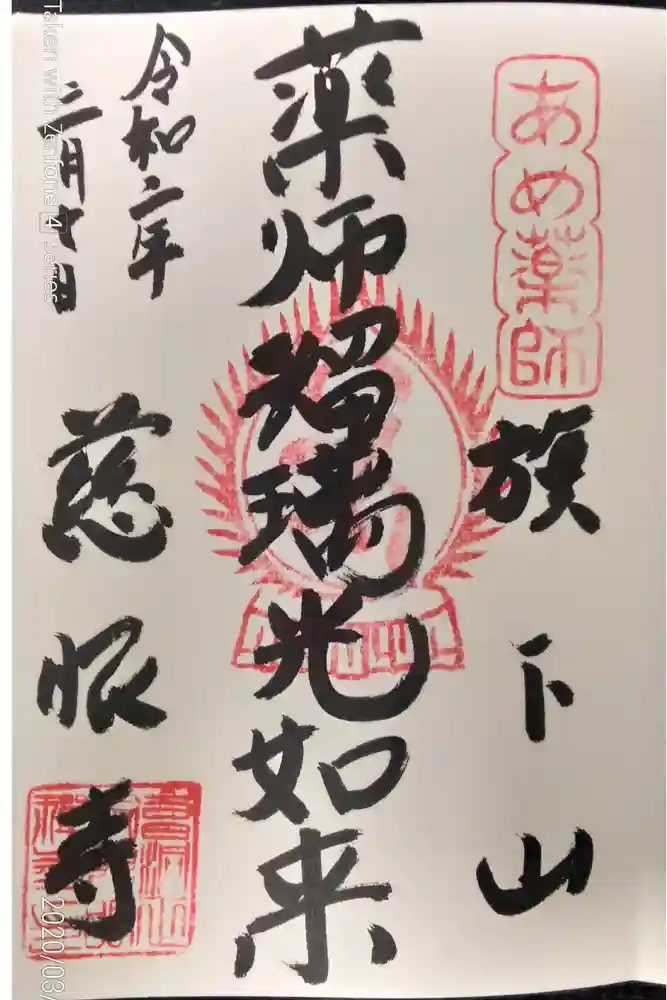 あめ薬師
旗下山
薬师瑠璃光如来
令和二年
三月十日
慈眼寺
Taken with Zenfone 4 Series
2020/03/